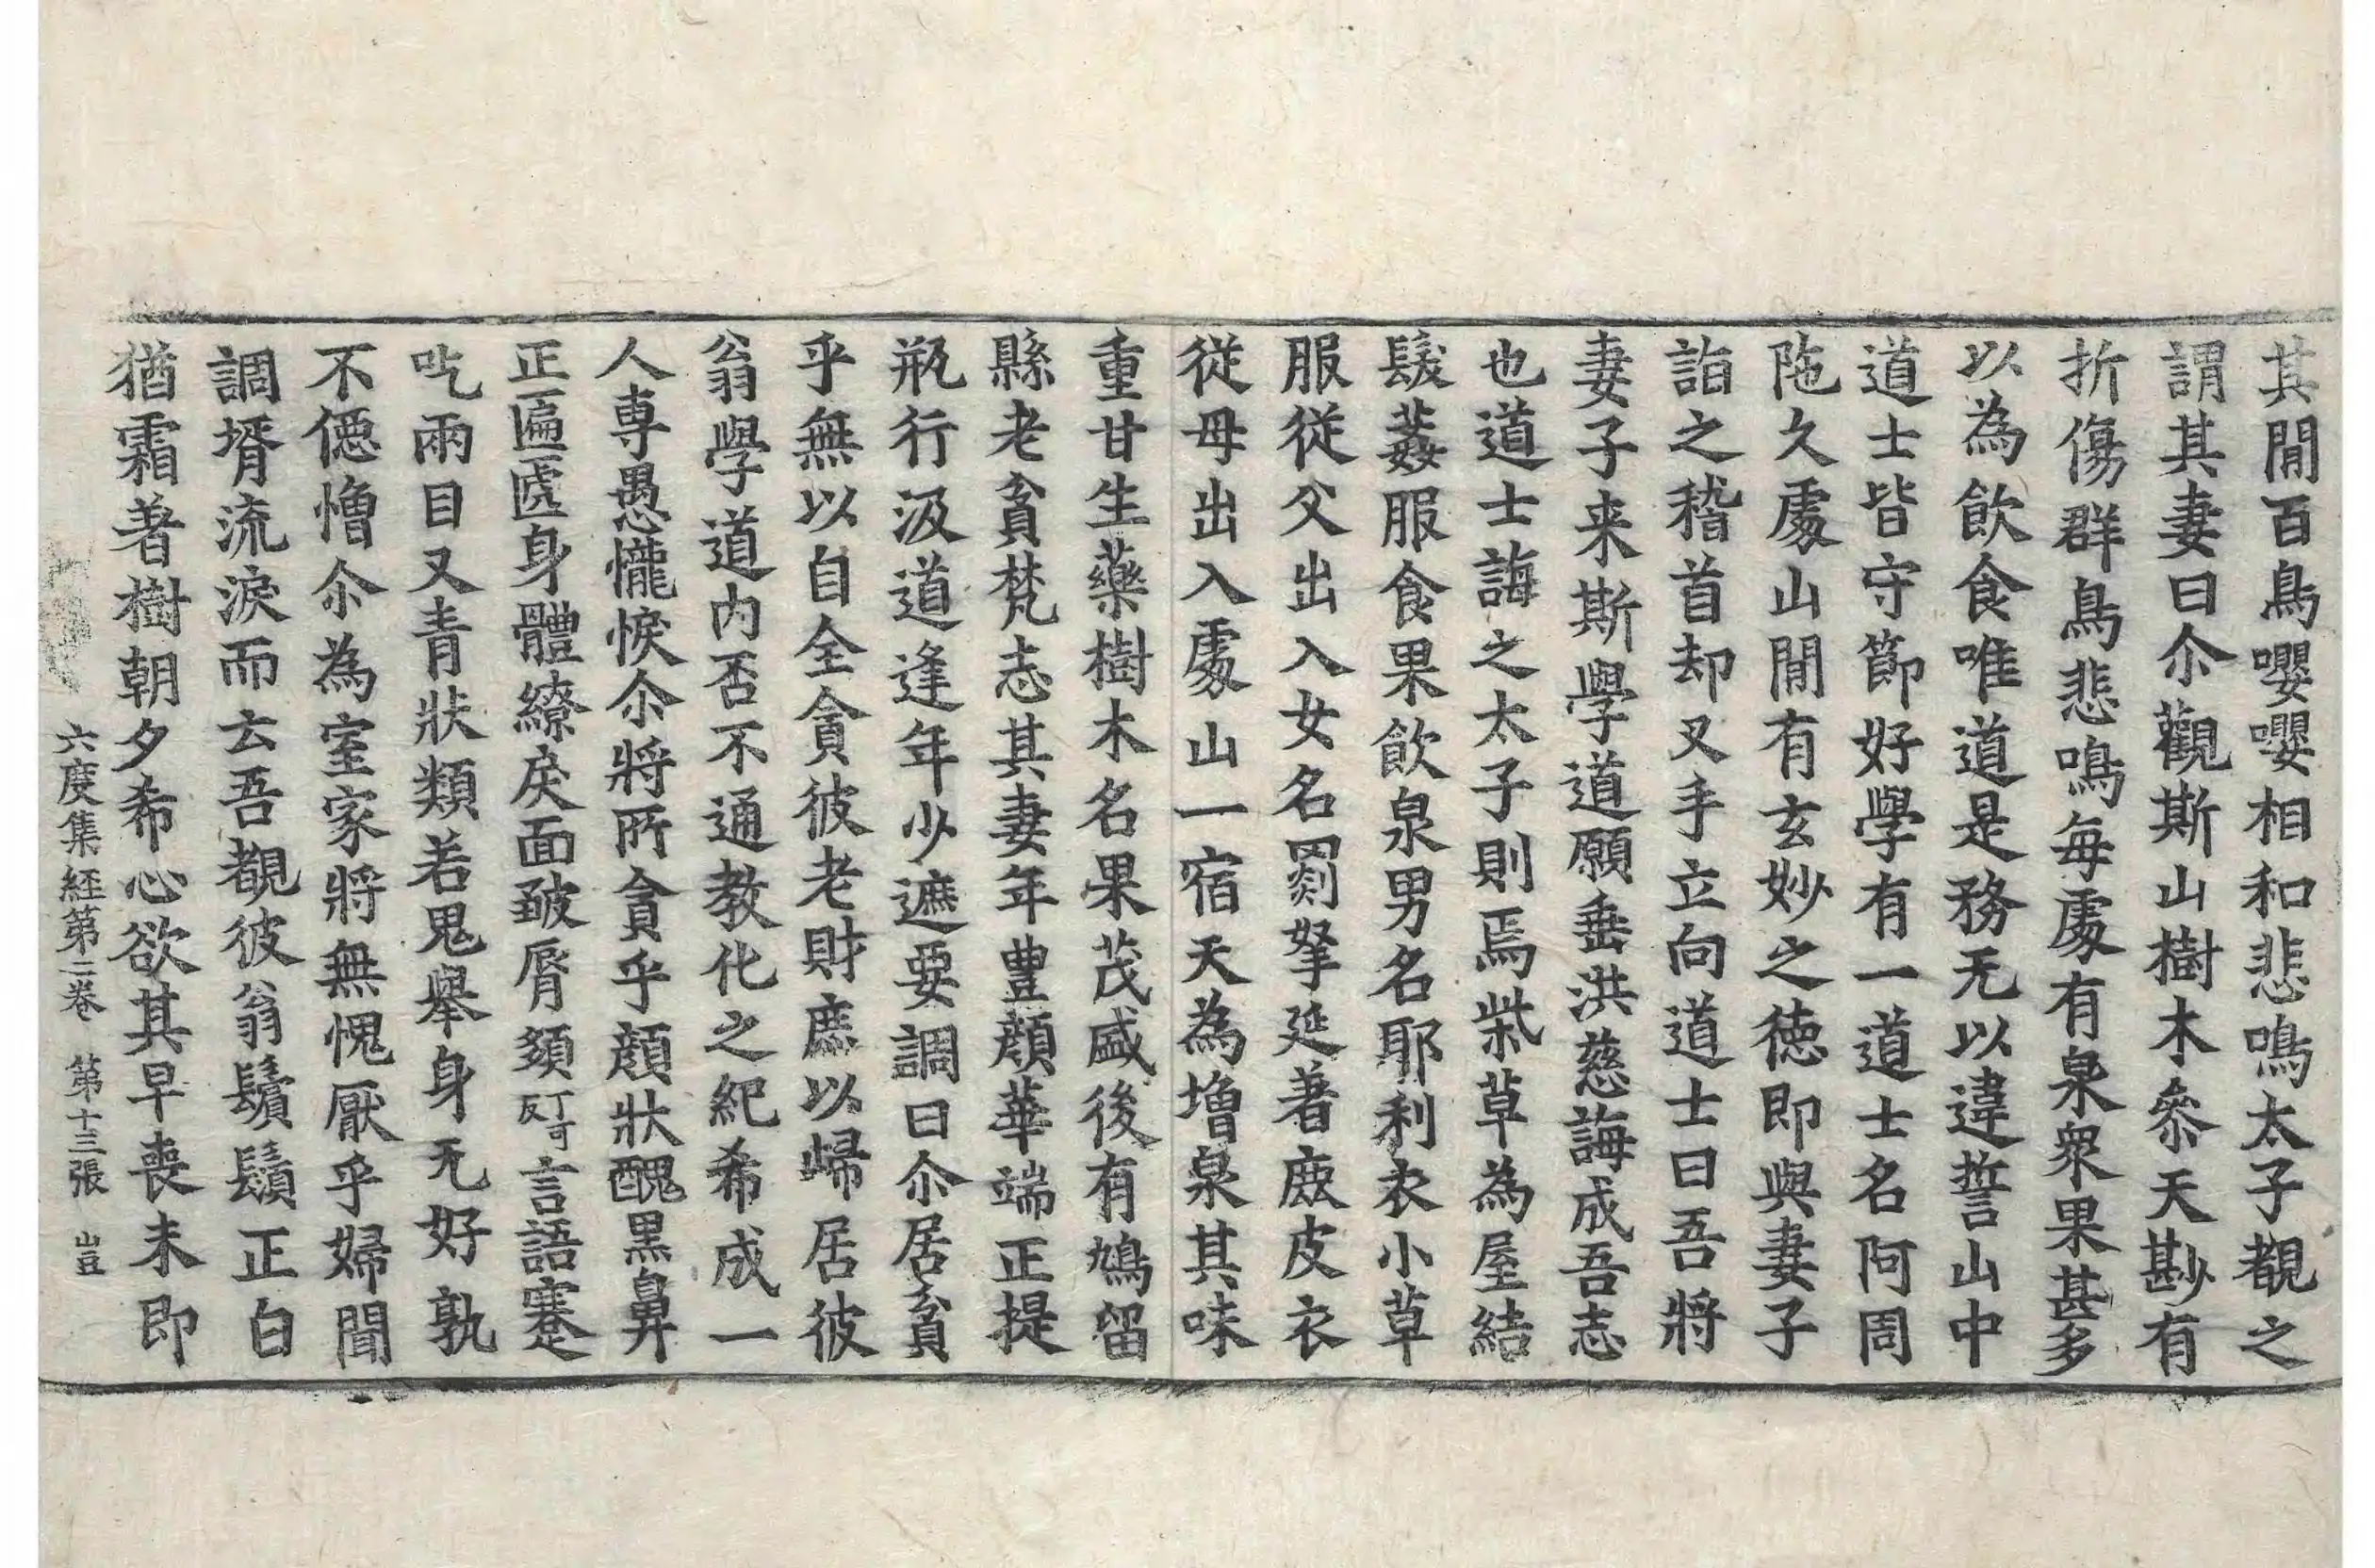 其間百鳥嚶嚶相和悲鳴太子覩之
謂其妻曰尒觀斯山樹木叅天尠有
折傷群鳥悲鳴每處有泉衆果甚多
以為飲食唯道是務无以違誓山中
道士皆守節好學有一道士名阿周
陁久處山閒有玄妙之徳即與妻子
詣之稽首却叉手立向道士曰吾將
妻子来斯學道願垂洪慈誨成吾志
也道士誨之太子則焉柴草為屋結
髮葌服食果飲泉男名耶利衣小草
服從父出入女名罽拏延著鹿皮衣
從母出入處山一宿天為增泉其味
重甘生藥樹木名果茂盛後有鳩留
縣老貧梵志其妻年豊顔華端正提
瓶行汲道逢年少遮要調曰尒居貧
乎無以自全貪彼老財庶以歸居彼
翁學道内否不通教化之紀希成一
人專愚㦢悷尒將所貪乎顔狀醜黒鼻
正匾㔸身體繚戾面皺脣頦丁可反言語蹇
吃兩目又青狀類若鬼舉身无好孰
不僫憎尒為室家將無愧厭乎婦聞
調壻流淚而云吾覩彼翁鬢鬚正白
猶霜著樹朝夕希心欲其早喪未即
六度集經第二卷 第十三張 豈